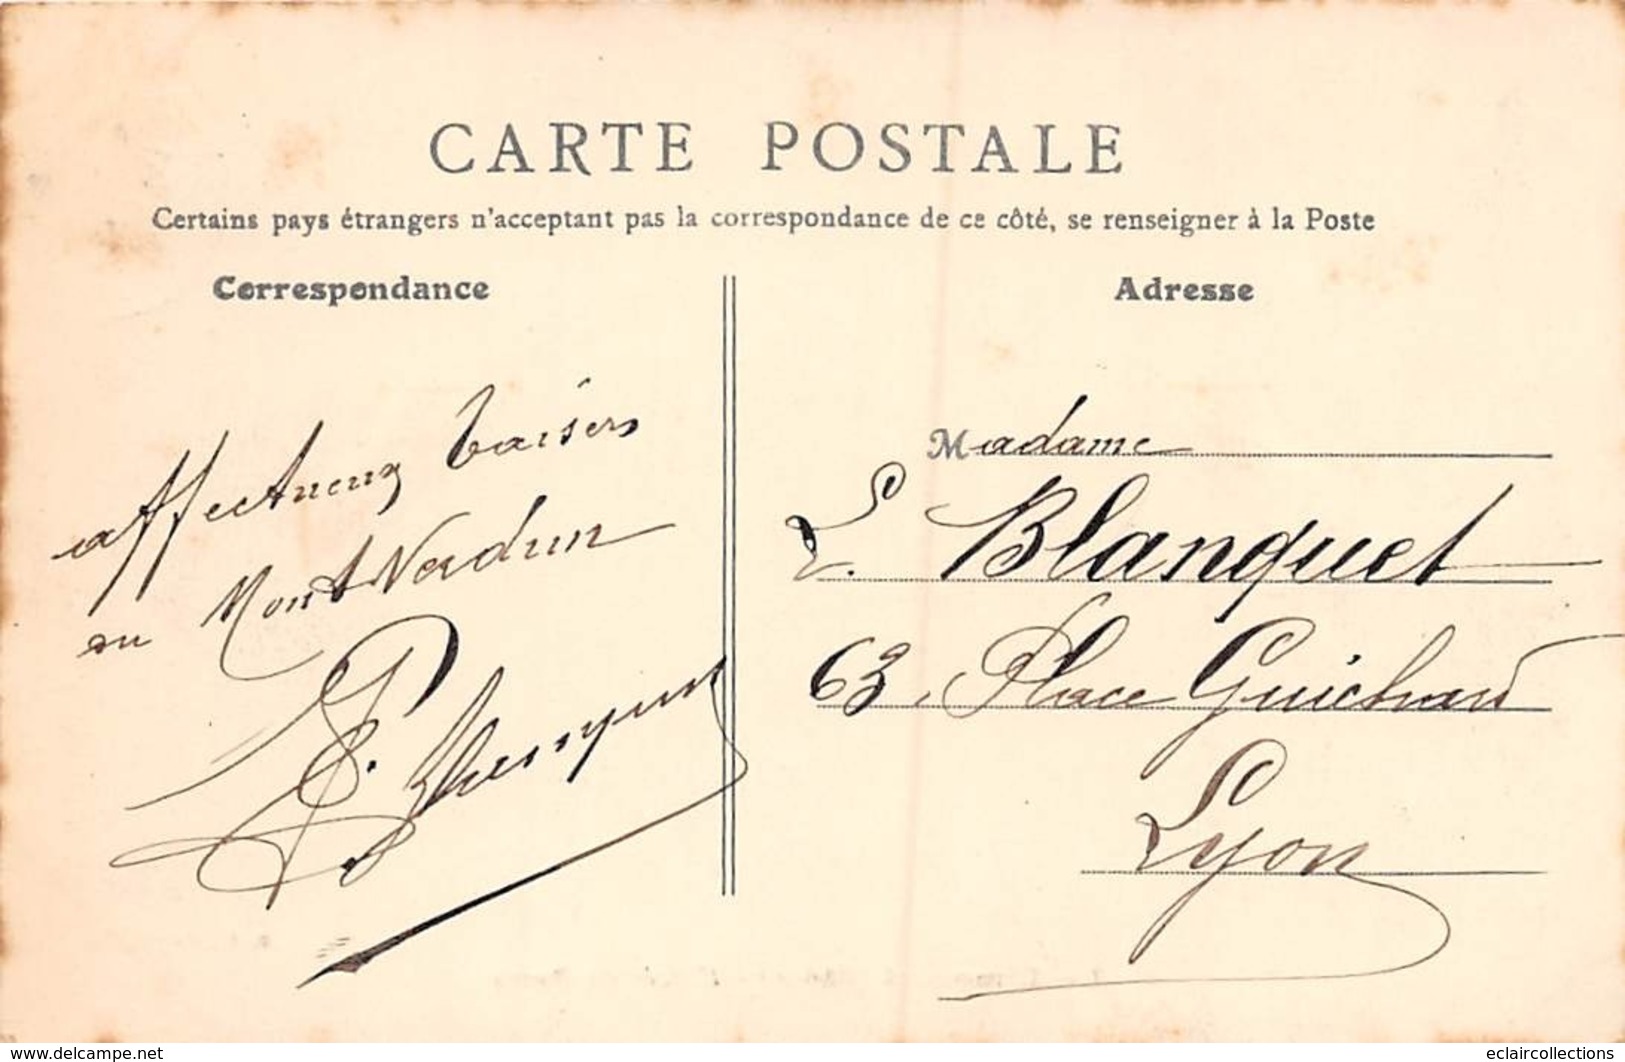 CARTE POSTALE
Certains pays étrangers n'acceptant pas la correspondance de ce côté, se renseigner à la Poste
Correspondance
affectueux baisers
du Mont Verdun
Adresse
Madame
L. Blanquet
63, Place Guichard
Lyon
www.delcampe.net
eclaircollections